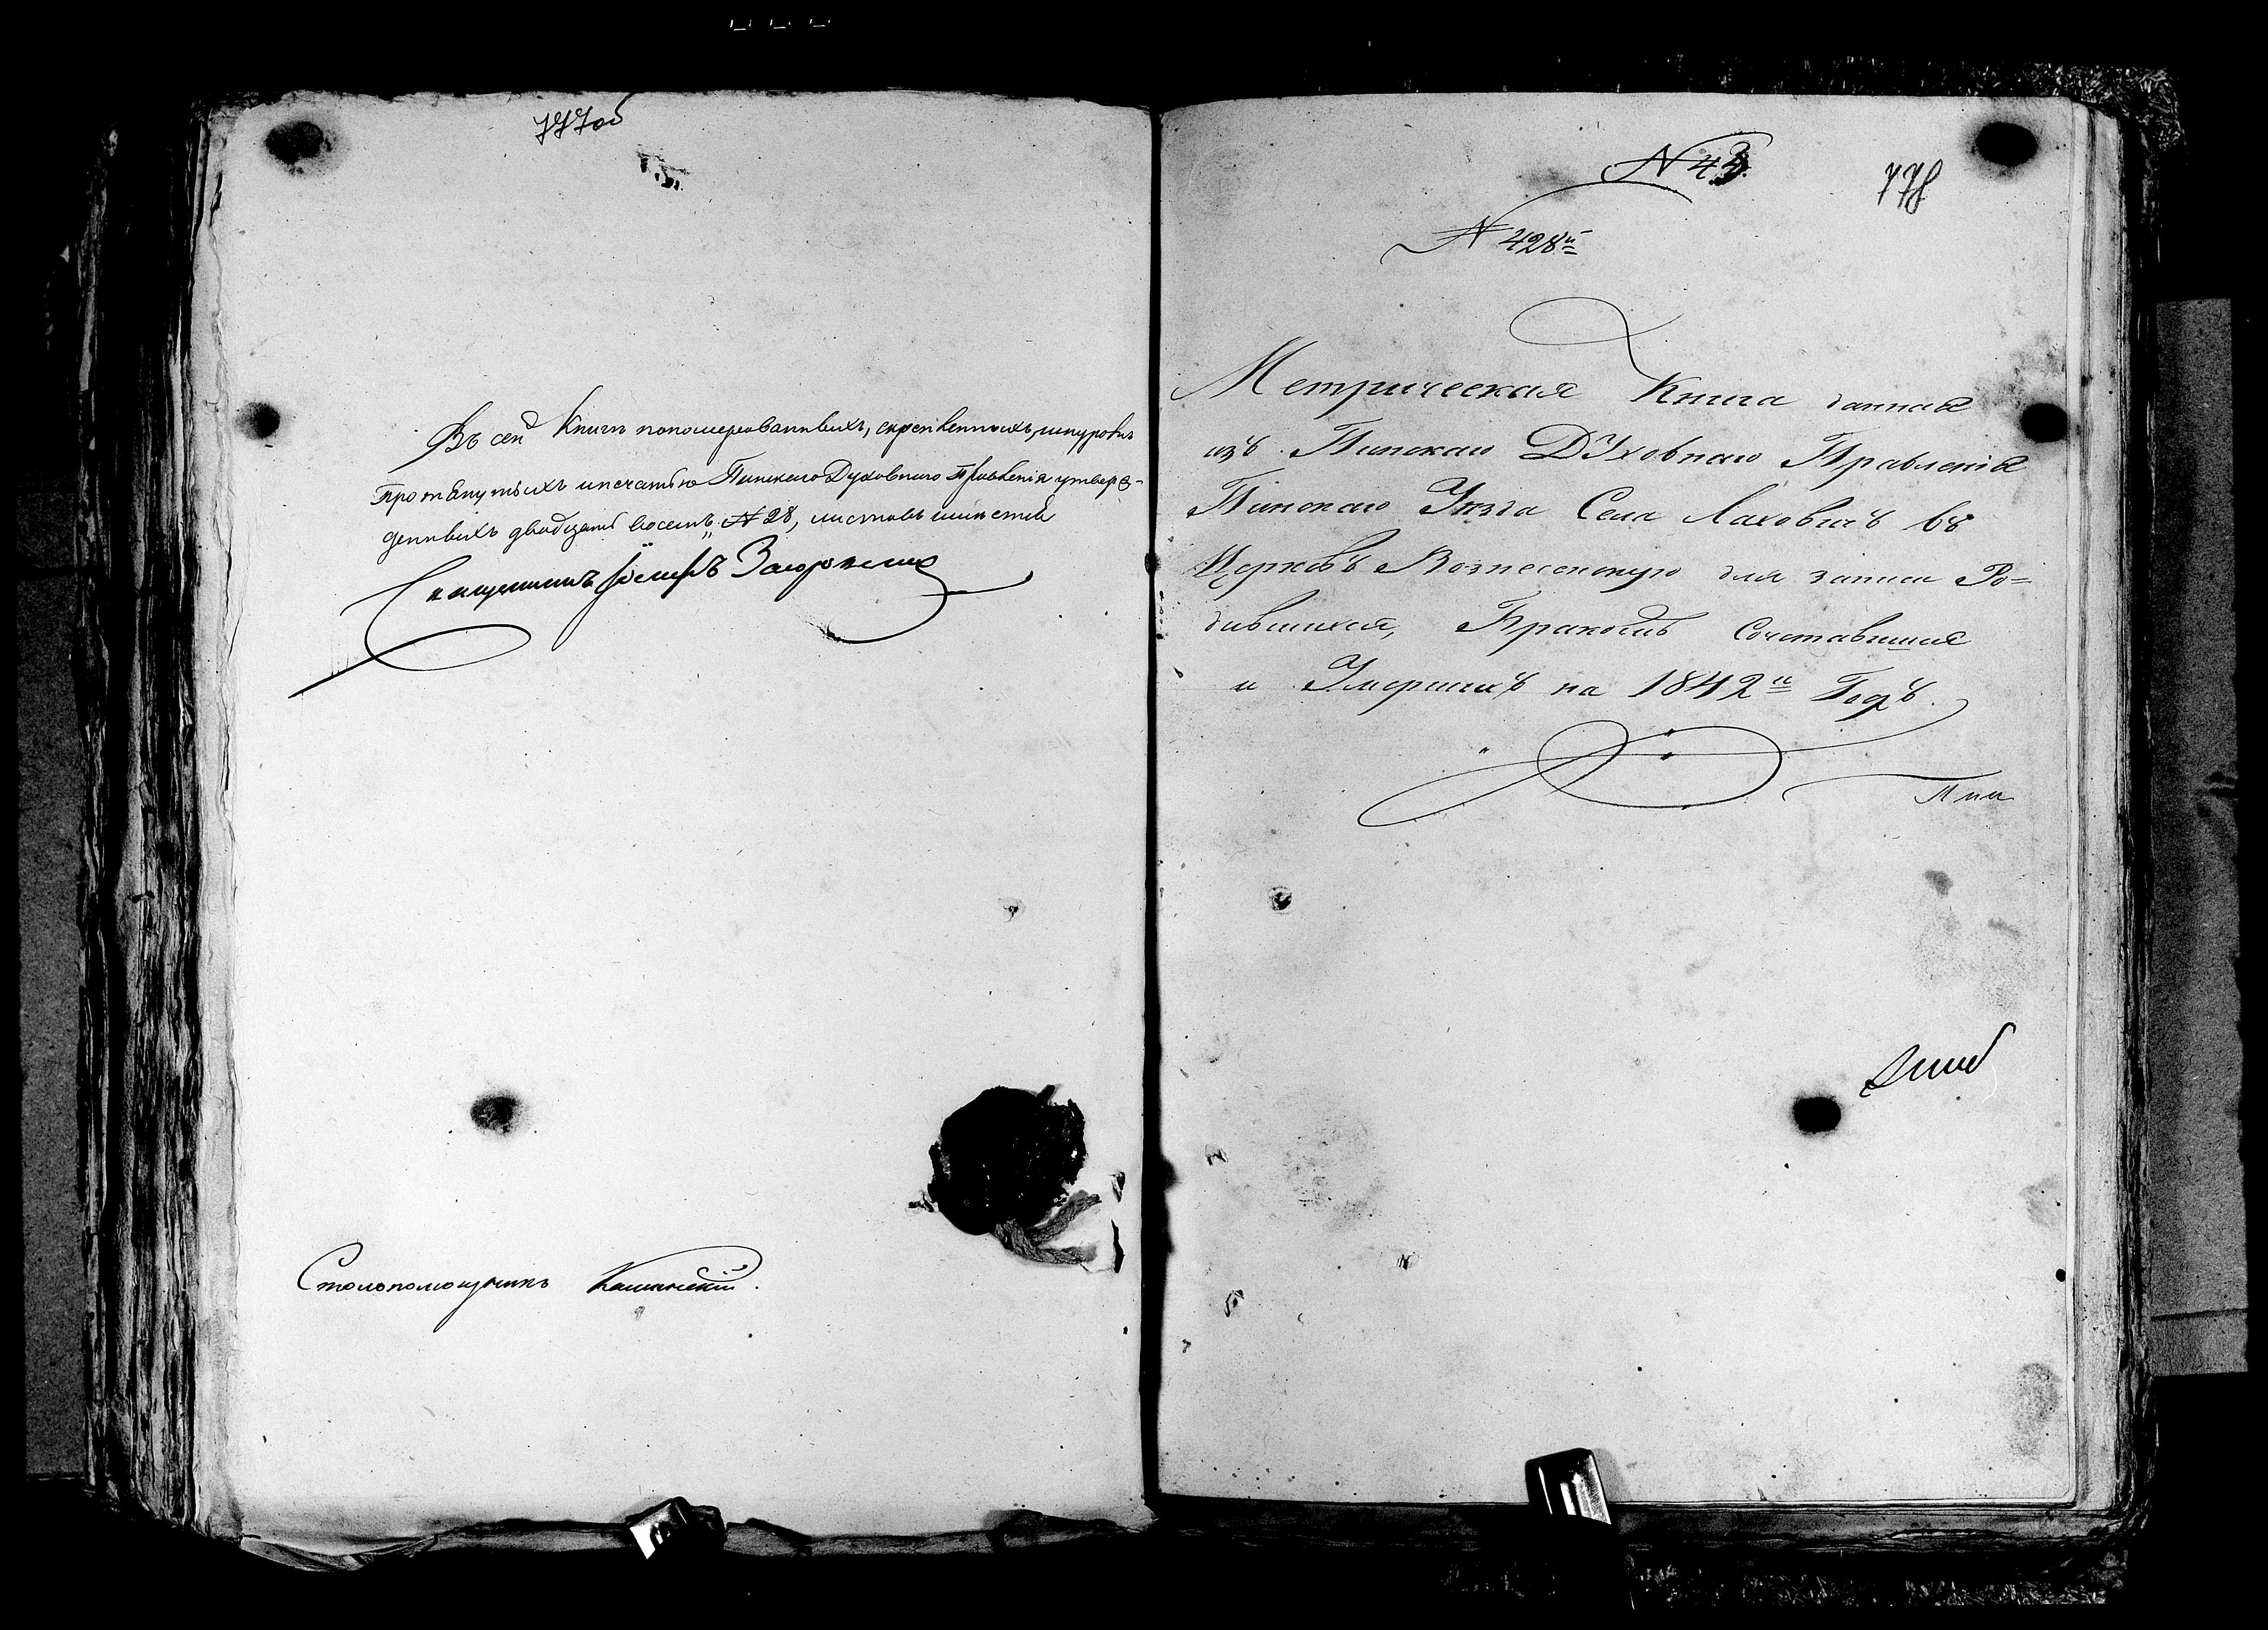 777об
Въ сей Книгѣ пономерованныхъ, скрепленныхъ, шнуромъ
протянутыхъ и печатью Пинскаго Духовного Правленія утверж-
денныхъ двадцать восемъ № 28, листовъ
Священникъ Іосифъ Загоровскій
Столопомощникъ
778
№ 43
№ 428й
Метрическая Книга данная
изъ Пинскаго Духовнаго Правленія
Пинскаго Уезда Села Лаховичъ въ
Церковъ Вознесенскую для записи Ро=
дившихся, Бракомъ Сочетавшихся
и Умершихъ на 1842й Годъ.
Пин